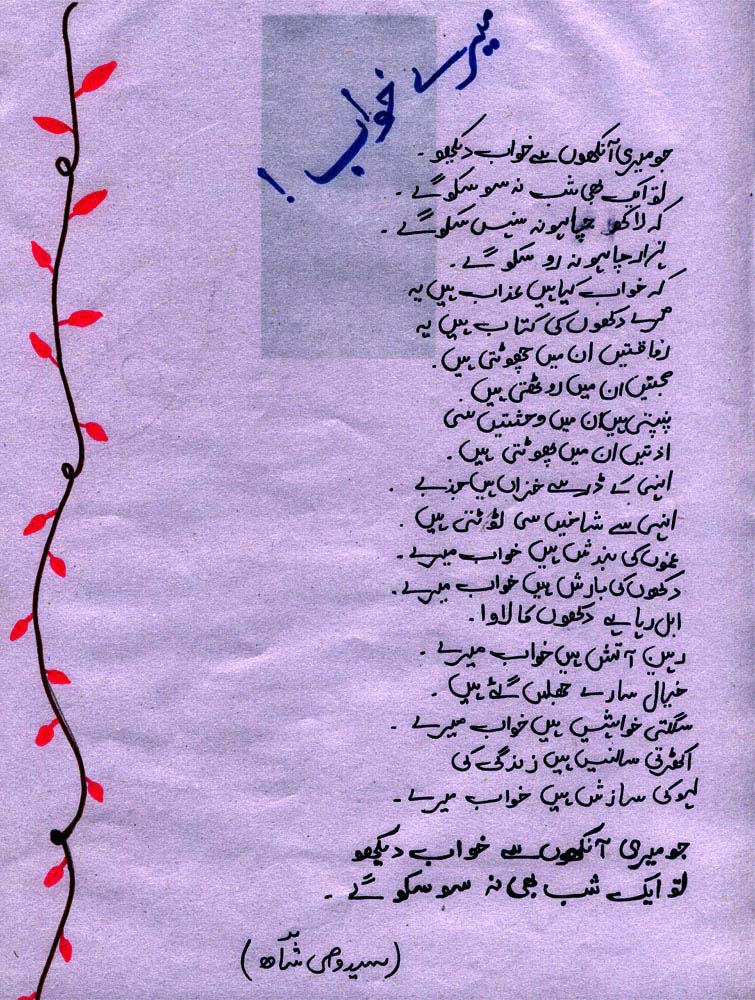 میرے خواب !
جو میری آنکھوں سے خواب دیکھو۔
تو ایک بھی شب نہ سو سکو گے۔
کہ لاکھ چاہو نہ ہنس سکو گے۔
ہزار چاہو نہ رو سکو گے۔
کہ خواب کیا ہیں عذاب ہیں یہ
مرے دکھوں کی کتاب ہیں یہ
رفاقتیں ان میں چھوٹتی ہیں۔
محبتیں ان میں روٹھتی ہیں
پنپتی ہیں ان میں وحشتیں سی
اذیتیں ان میں پھوٹتی ہیں۔
انہی کے ڈر سے خزاں ہیں جذبے۔
انہی سے شاخیں سی ٹوٹتی ہیں۔
غموں کی بندش ہیں خواب میرے۔
دکھوں کی بارش ہیں خواب میرے۔
ابل رہا ہے دکھوں کا لاوا۔
رہین آتش ہیں خواب میرے۔
خیال سارے جھلس گئے ہیں۔
سلگتی خواہشیں ہیں خواب میرے۔
اکھڑتی سانسیں ہیں زندگی کی
لہو کی سازش ہیں خواب میرے۔
جو میری آنکھوں سے خواب دیکھو
تو ایک شب بھی نہ سو سکو گے۔
(سید وصی شاہ)